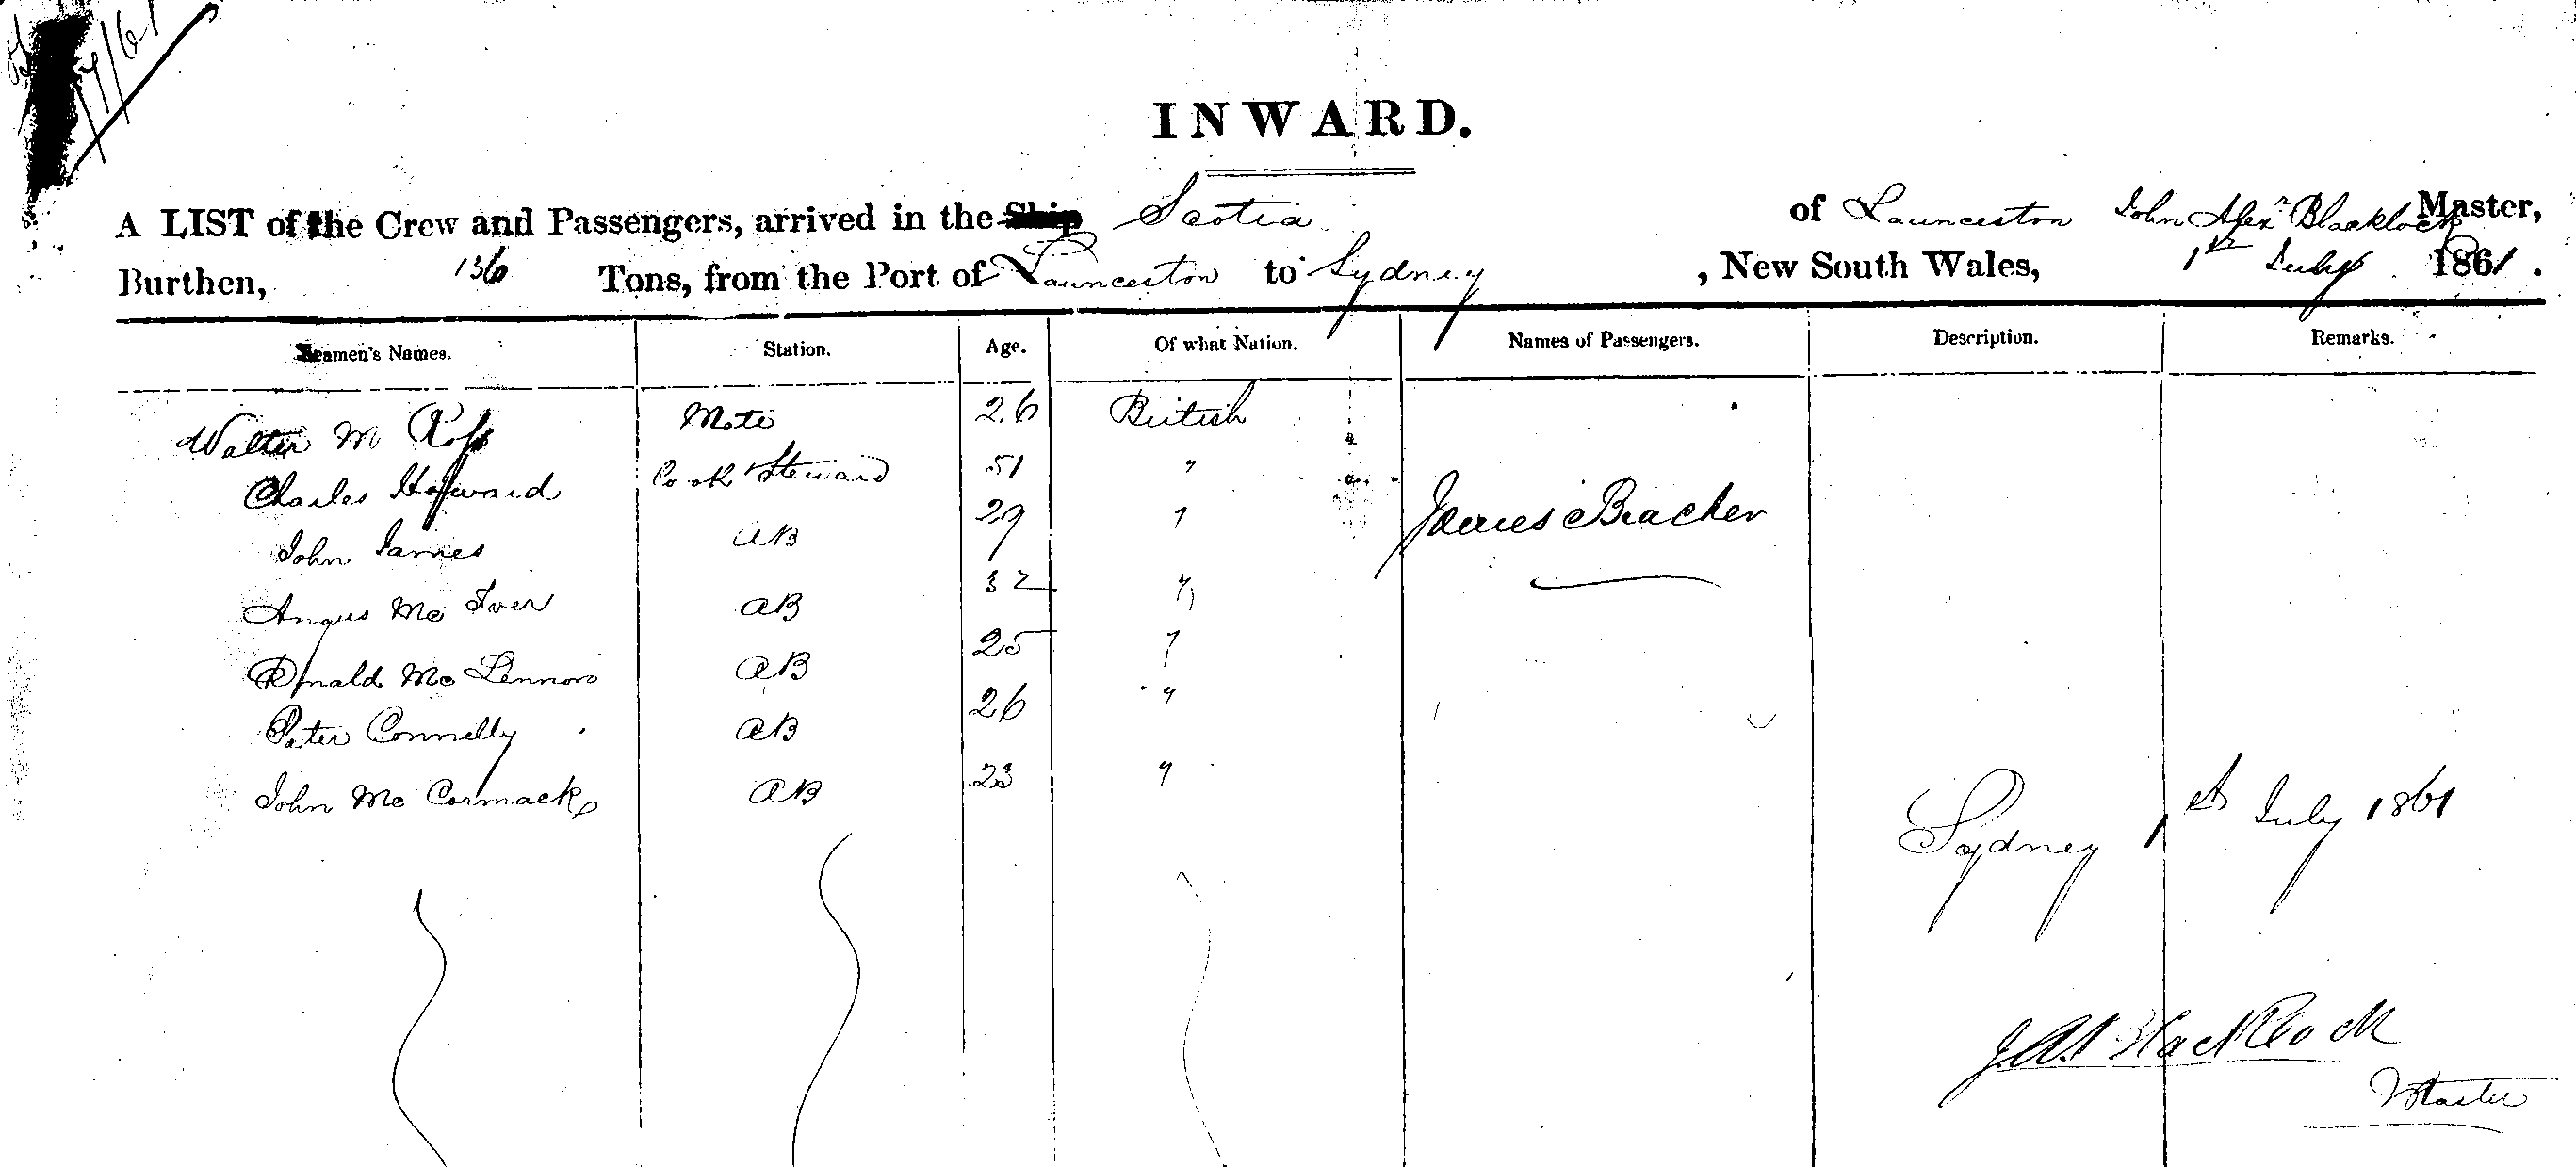 7/61
INWARD.
A LIST of the Crew and Passengers, arrived in the Ship Scotia of Launceston John Alexr Blacklock Master,
Burthen, 136 Tons, from the Port of Launceston to Sydney, New South Wales, 1st July 1861.
Seamen's Names. Station. Age. Of what Nation. Names of Passengers. Description. Remarks.
Walter M Ross Mate 26 British
Charles Hayward Cook & Steward 51 "
James Bracker
John James AB 29 "
Angus Mc Iver AB 32 "
Donald Mc Lennon AB 25 "
Peter Connelly AB 26 "
John Mc Cormack AB 23 "
Sydney 1st July 1861
J.A. Blacklock
Master